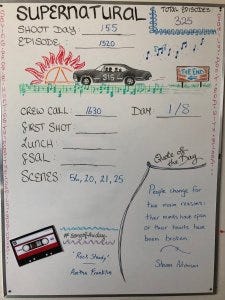 SUPERNATURAL
TOTAL EPISODES
325
SHOOT DAY: 155
EPISODE: 1520
315
THE END
CREW CALL: 1630 DAY: 1/8
FIRST SHOT
LUNCH
GSAL:
SCENES: 56, 20, 21, 25
Quote of the Day
People change for
two main reasons:
their minds have open
or their hearts have
been broken.
Steven Aitchison
#songoftheday
'Rock Steady'
Aretha Franklin